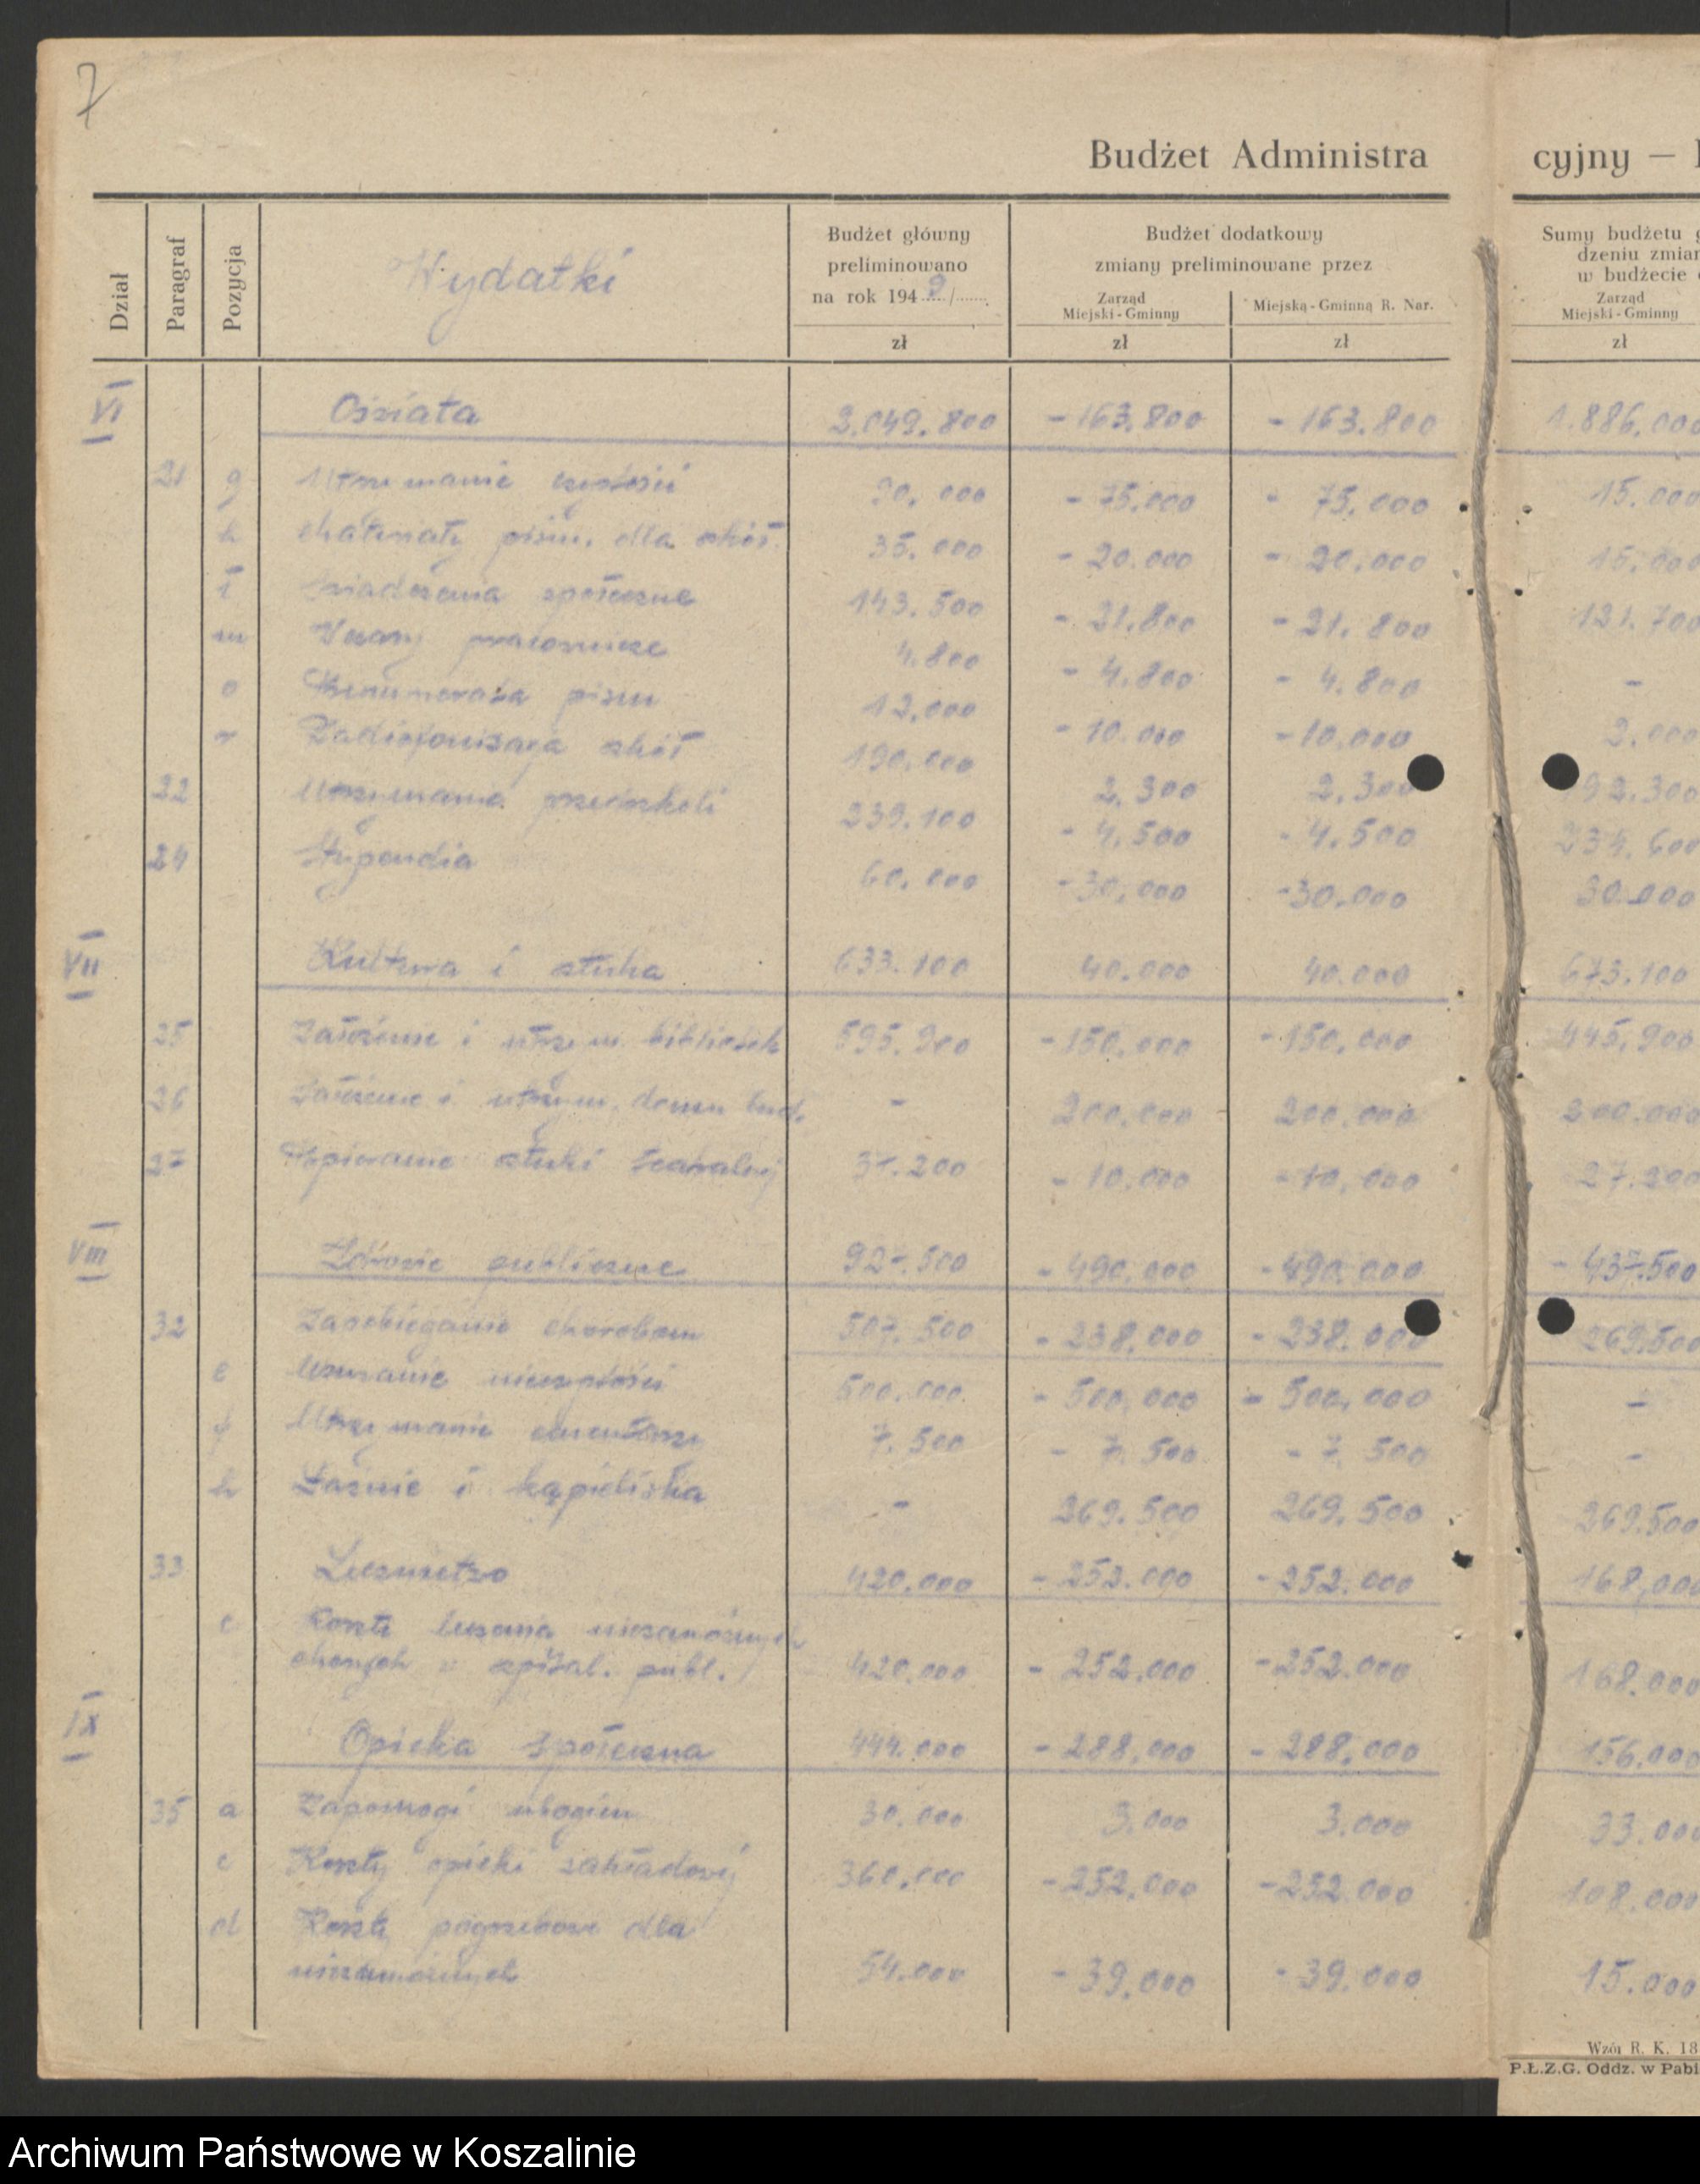 7
Budżet Administra cyjny —
Dział Paragraf Pozycja Wydatki Budżet główny preliminowano na rok 1949/ zł Budżet dodatkowy zmiany preliminowane przez Zarząd Miejski-Gminny zł Miejską-Gminną R. Nar. zł Sumy budżetu dzeniu zmian w budżecie Zarząd Miejski-Gminny zł
VI Oświata 2.049.800 -163.800 - 163.800 1.886.000
21 g Utrzymanie czystości 90.000 - 75.000 - 75.000 15.000
h Materiały piśm. dla szkół 35.000 - 20.000 - 20.000 15.000
ł Świadczenia społeczne 143.500 - 21.800 - 21.800 121.700
m Wczasy pracownicze 4.800 - 4.800 - 4.800 -
o Prenumerata pism 12.000 - 10.000 - 10.000 2.000
r Radiofonizacja szkół 190.000 2.300 2.300 92.300
22 Utrzymanie przedszkoli 239.100 - 4.500 - 4.500 234.600
24 Stypendia 60.000 - 30.000 - 30.000 30.000
VII Kultura i sztuka 633.100 40.000 40.000 673.100
25 Założenie i utrzym. bibliotek 595.900 - 150.000 - 150.000 445.900
26 Założenie i utrzym. domu lud. - 200.000 200.000 200.000
27 Wspieranie sztuki teatralnej 37.200 - 10.000 - 10.000 27.200
VIII Zdrowie publiczne 927.500 - 490.000 - 490.000 - 437.500
32 Zapobieganie chorobom 507.500 - 238.000 - 238.000 269.500
e Usuwanie nieczystości 500.000 - 500.000 - 500.000 -
f Utrzymanie cmentarzy 7.500 - 7.500 - 7.500 -
h Łaźnie i kąpieliska - 269.500 269.500 269.500
33 Lecznictwo 420.000 - 252.000 - 252.000 168.000
c Koszty leczenia niezamożnych
chorych w szpital. publ. 420.000 - 252.000 - 252.000 168.000
IX Opieka społeczna 444.000 - 288.000 - 288.000 156.000
35 a Zapomogi ubogim 30.000 3.000 3.000 33.000
c Koszty opieki zakładowej 360.000 - 252.000 - 252.000 108.000
d Koszty pogrzebowe dla
niezamożnych 54.000 - 39.000 - 39.000 15.000
Wzór R. K. 18
P.Ł.Z.G. Oddz. w Pabi
Archiwum Państwowe w Koszalinie